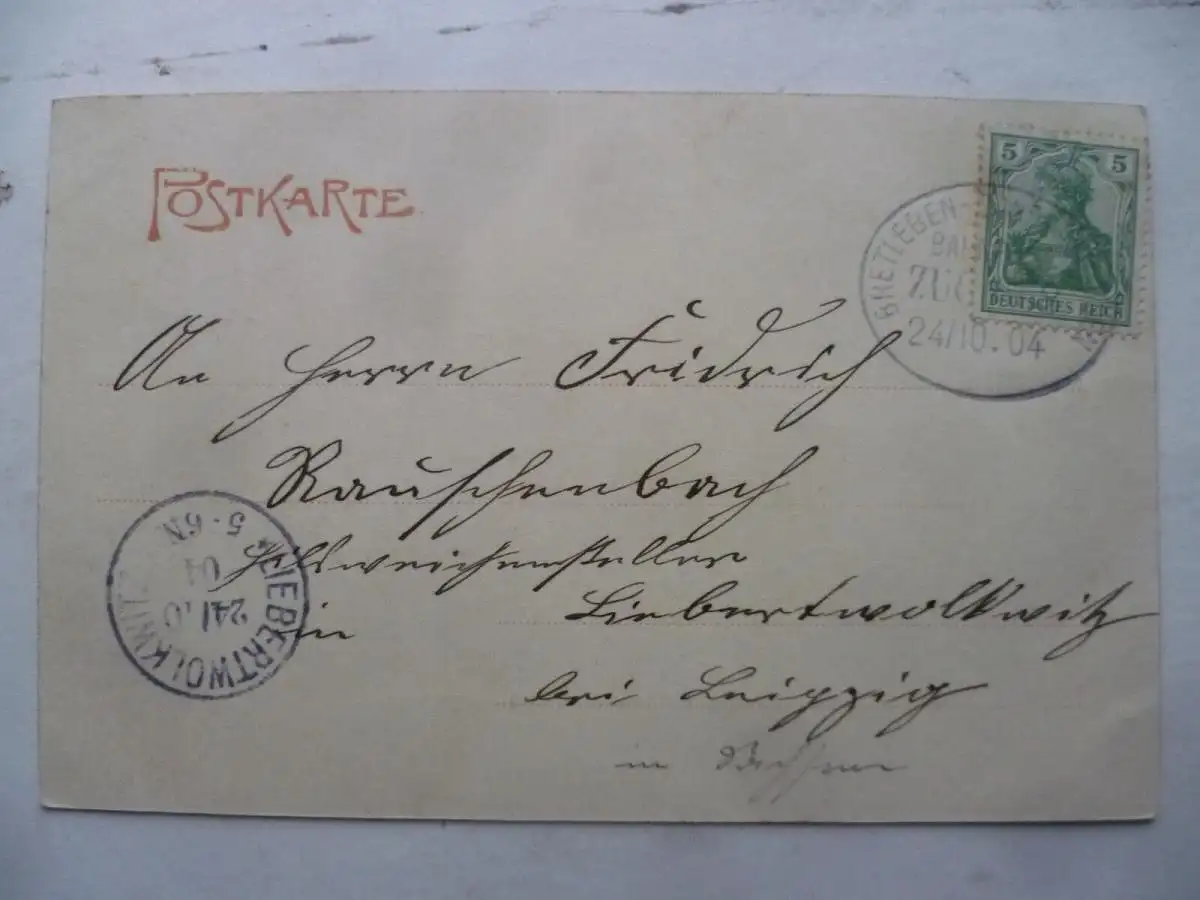 POSTKARTE
5 5
DEUTSCHES REICH
BRETLEBEN-
BA
ZUG
24/10.04
An Herrn Fridrich
Rauschenbach
Hilfsweichensteller
in Liebertwolkwitz
bei Leipzig
in Sachsen
LIEBERTWOLKWITZ
24/10
04
5-6N